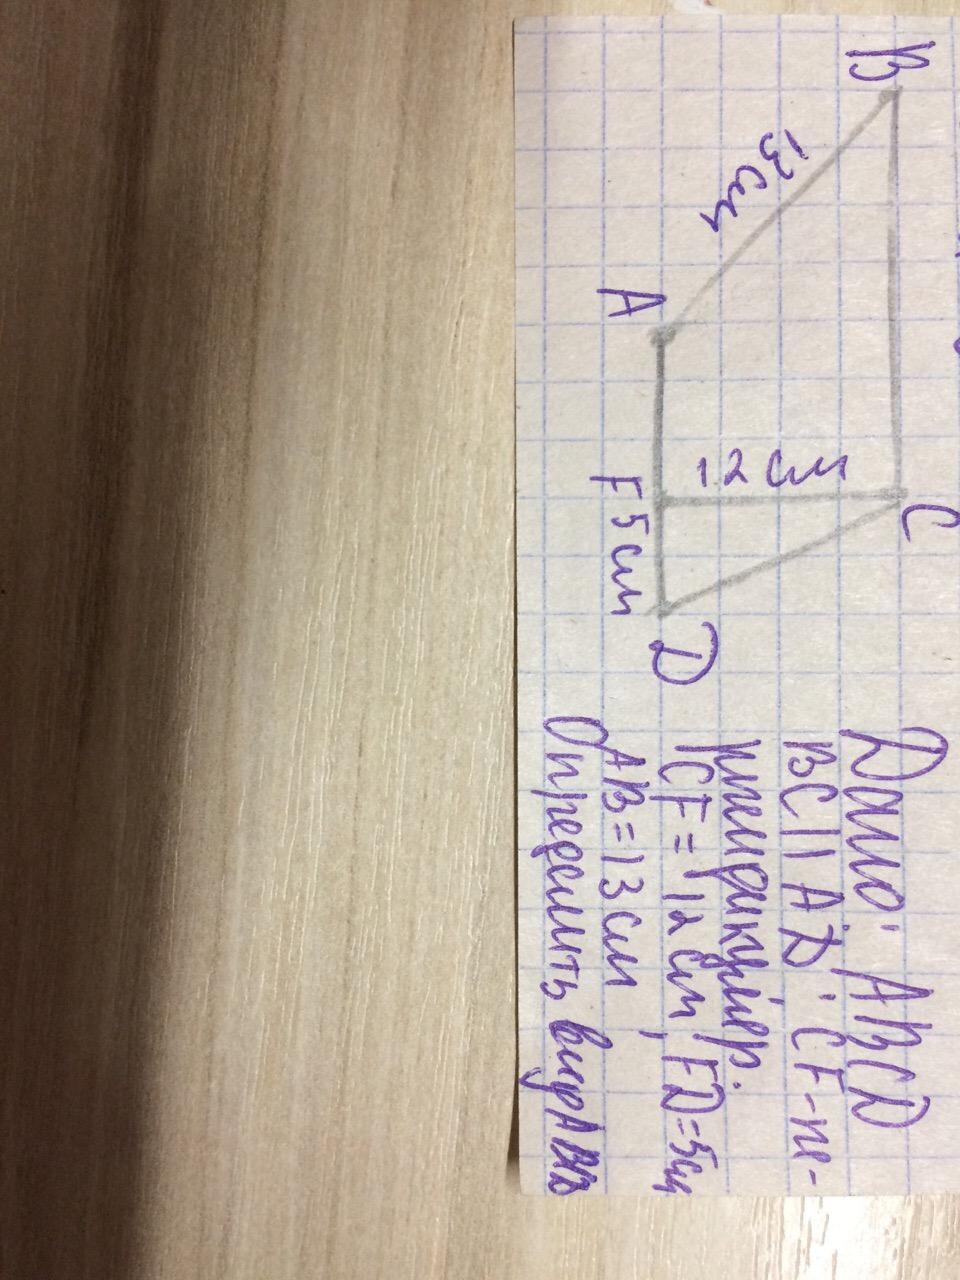 B
C
13 см
12 см
A
F 5 см
D
Дано: ABCD
BC || AD; CF - пе-
рпендикуляр.
CF = 12 см, FD = 5 см
AB = 13 см
Определить вид